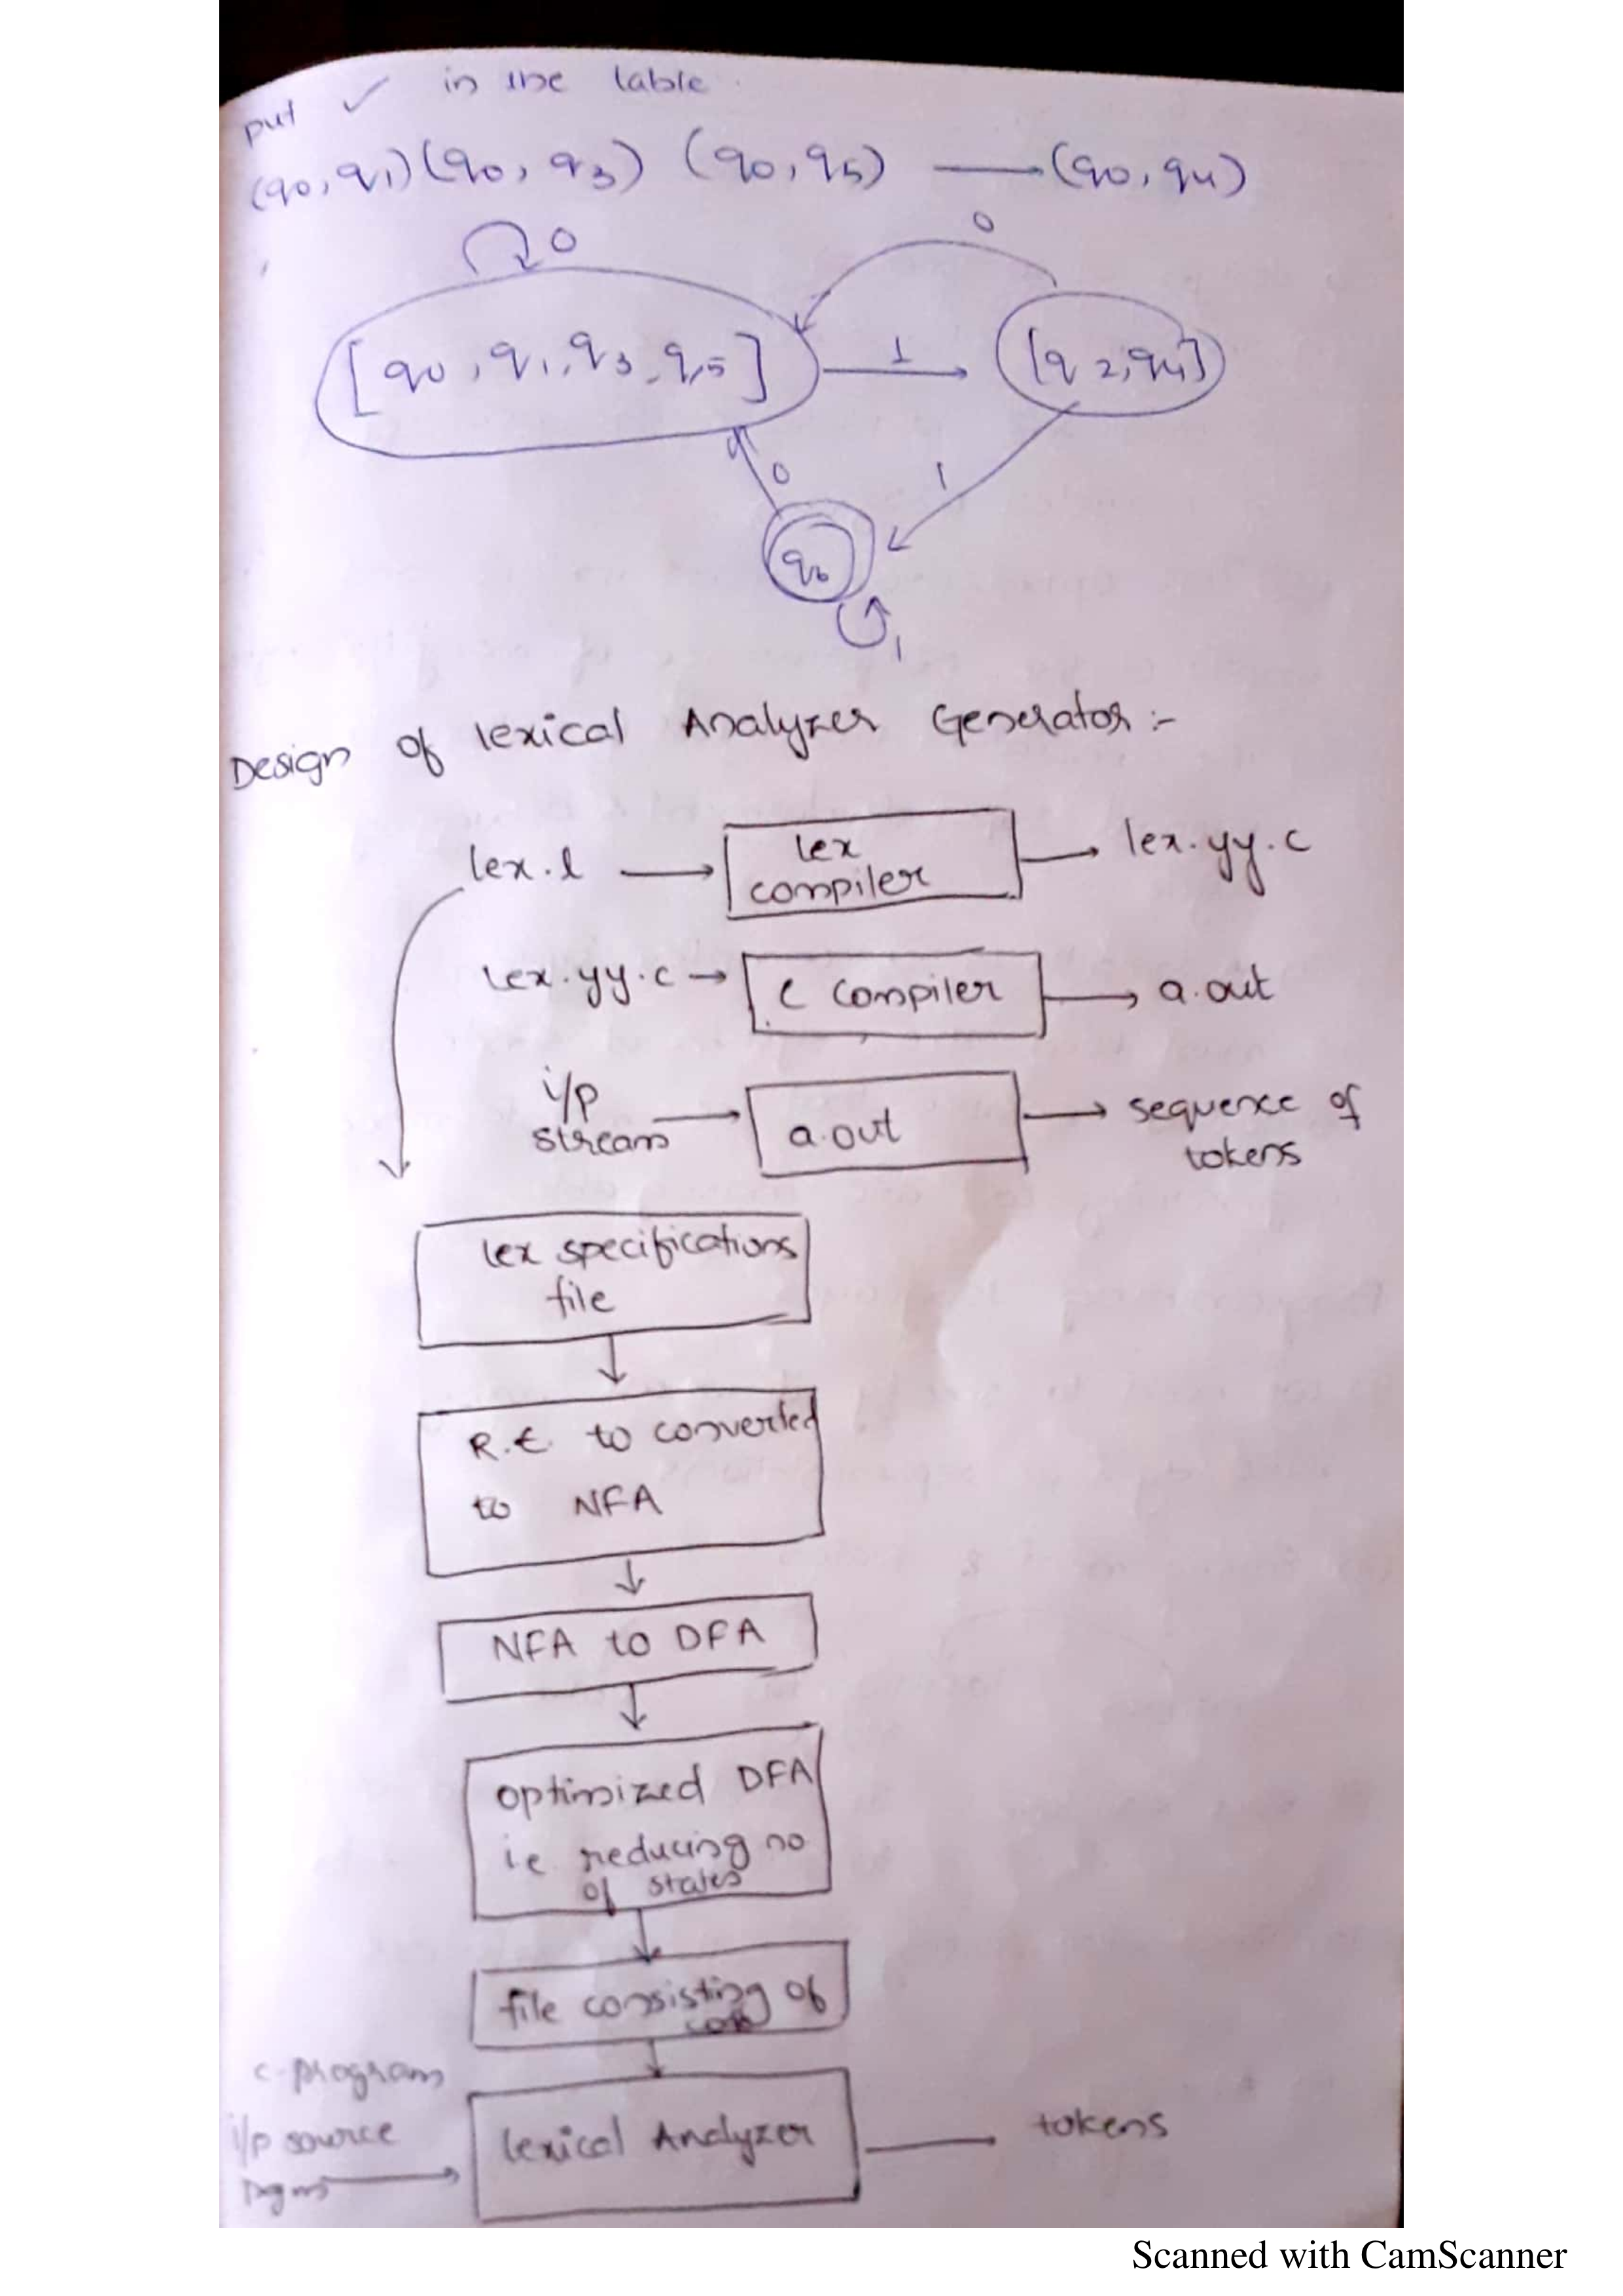 put ✓ in the table.
(q0, q1) (q0, q3) (q0, q5) — (q0, q4)
0
0
[q0, q1, q3, q5]
1
[q2, q4]
0
1
q6
1
Design of lexical Analyzer Generator :-
lex.l → lex compiler → lex.yy.c
lex.yy.c → C compiler → a.out
i/p stream → a.out → sequence of tokens
lex specifications
file
R.E. to converted
to NFA
NFA to DFA
optimized DFA
i.e reducing no
of states
file consisting of
c-program
i/p source
pgm
lexical Analyzer
tokens
Scanned with CamScanner